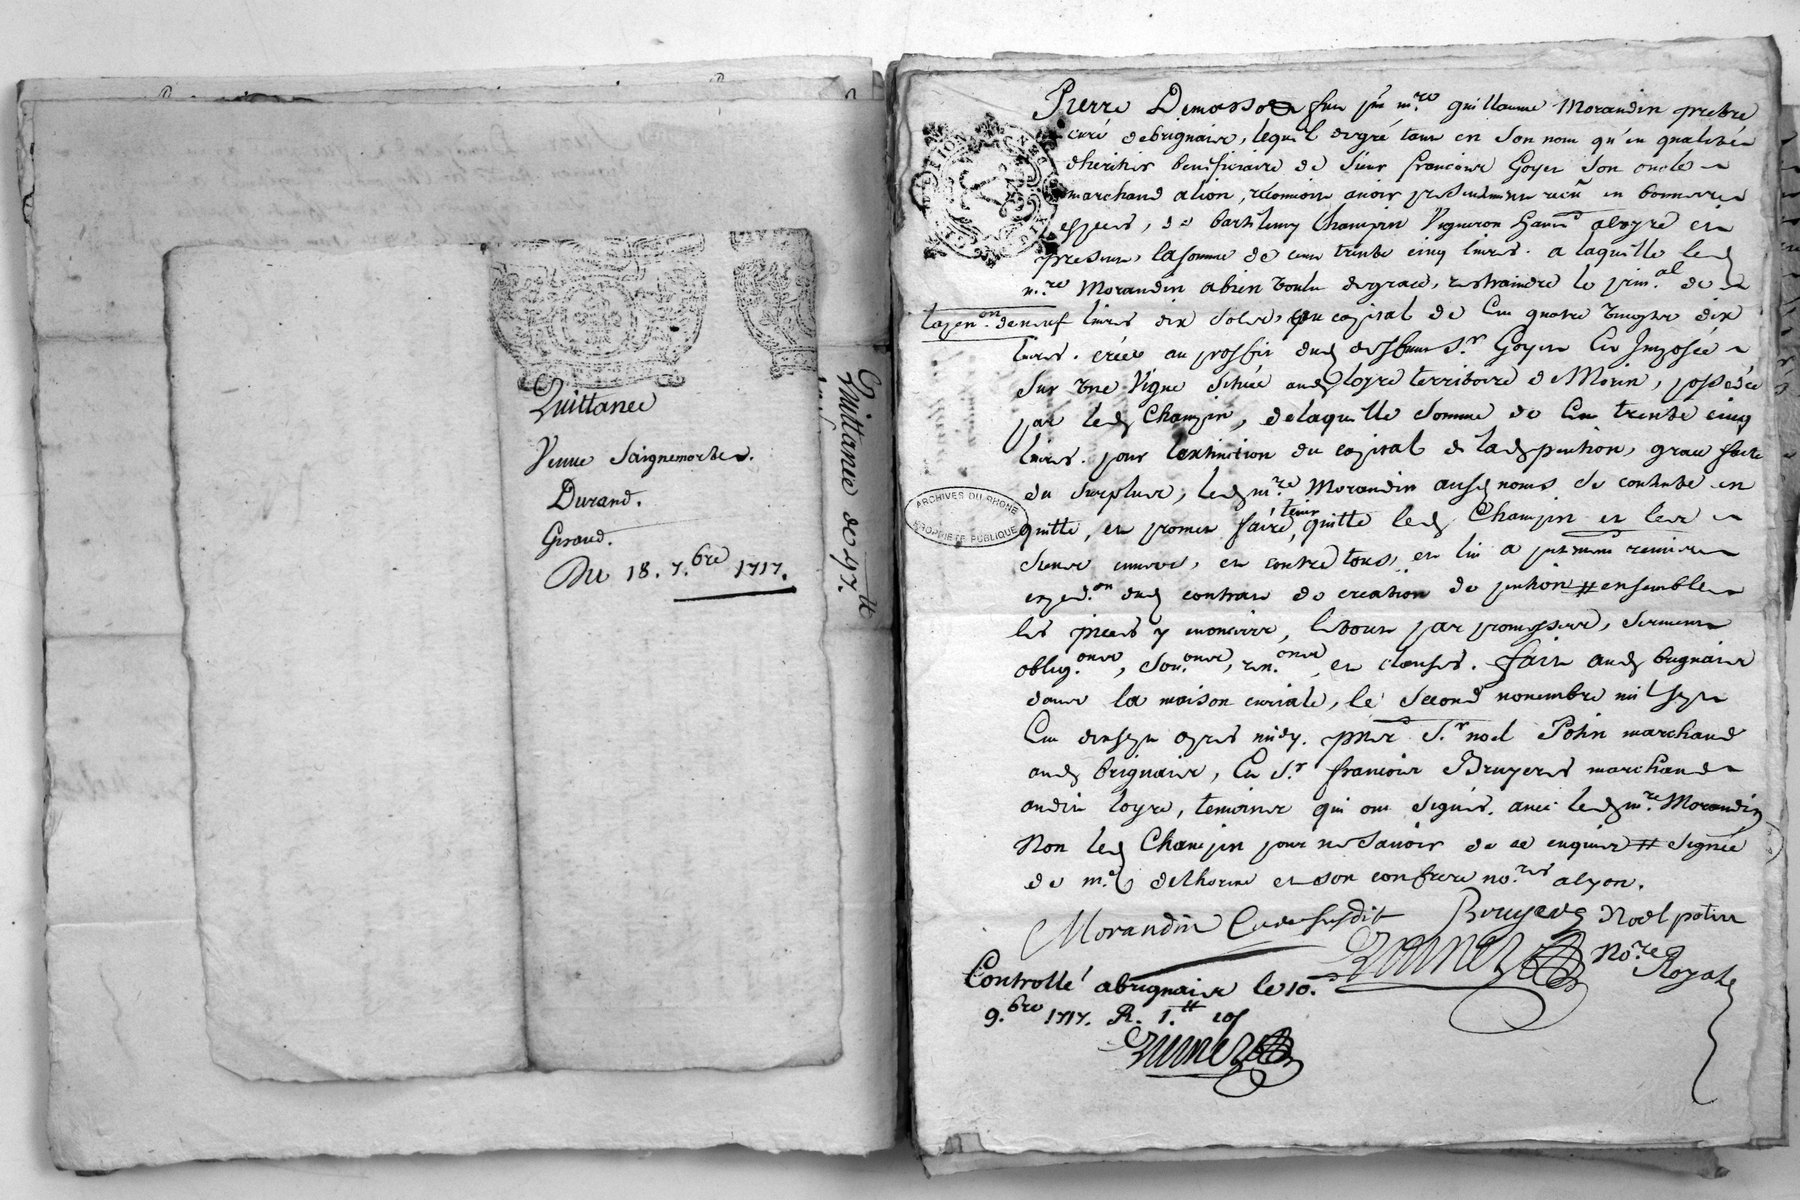 Quittance
Veuve Saignemorte.
Durand.
Giraud.
Du 18. 7.bre 1717.
Quittance de 197.tt
Pierre fut pnt m.re guillaume Morandin prebtre
curé debrignais, lequel degré tant en son nom qu'en qualité
dheritier beneficiaire de Sieur francois Goyet son oncle
marchand alion, reconnoit avoir presentement receu en bonnes
especes, de Vigneron aloyre cy
present, lasomme de cent trente cinq livres. a laquelle led
m.re Morandin abien voulu degrace, restraindre le prin.al de
lapen.on deneuf livres dix sols, au capital de Cent quatre vingts dix
livres. créée au proffit dud deffunt S.r Goyet Et Imposée
sur une Vigne située aud loyre territoire de Morin, possedée
par led Champin, delaquelle somme de Cent trente cinq
livres. pour Lextinction du capital de lad pention, grace faite
du surplus, led m.re Morandin ausd noms se contente en
quitte, et promet faire tenir quitte led Champin et les
siens envers, et contre tous, et lui a pntement remis
exped.on dud contrat de creation de pention # ensemble
les pieces y enoncées, letout par promesses, serment
oblig.ons, sou.ons, ren.ons, et clauses. fait aud brignais
dans la maison curiale, le second novembre mil sept
Cent dixsept apres midy. pnts S.r noel Potin marchand
aud brignais, Et S.r francois Bruyeres marchand
audit loyre, temoins qui ont signés. avec led m.re Morandin
Non led Champin pour ne scavoir de ce enquis # signée
de m.e delhorme et son confrere no.res alyon.
Morandin Curé susdit Bruyeres Noel potin
No.re Royal
Controllé abrignais le 10.
9.bre 1717. R. 1.tt
ARCHIVES DU RHONE
PROPRIETE PUBLIQUE